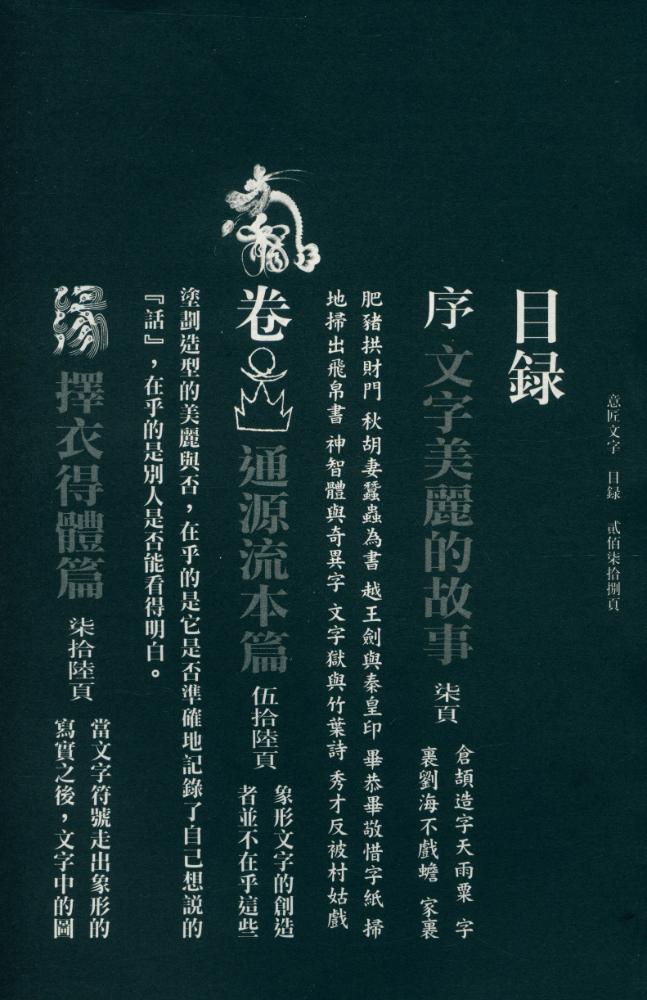 意匠文字 目録 貳佰柒拾捌頁
目録
序 文字美麗的故事 柒頁
倉頡造字天雨粟 字
裏劉海不戲蟾 家裏
肥豬拱財門 秋胡妻蠶蟲為書 越王劍與秦皇印 畢恭畢敬惜字紙 掃
地掃出飛帛書 神智體與奇異字 文字獄與竹葉詩 秀才反被村姑戲
卷 通源流本篇 伍拾陸頁
象形文字的創造
者並不在乎這些
塗劃造型的美麗與否，在乎的是它是否準確地記錄了自己想說的
『話』，在乎的是別人是否能看得明白。
擇衣得體篇 柒拾陸頁
當文字符號走出象形的
寫實之後，文字中的圖